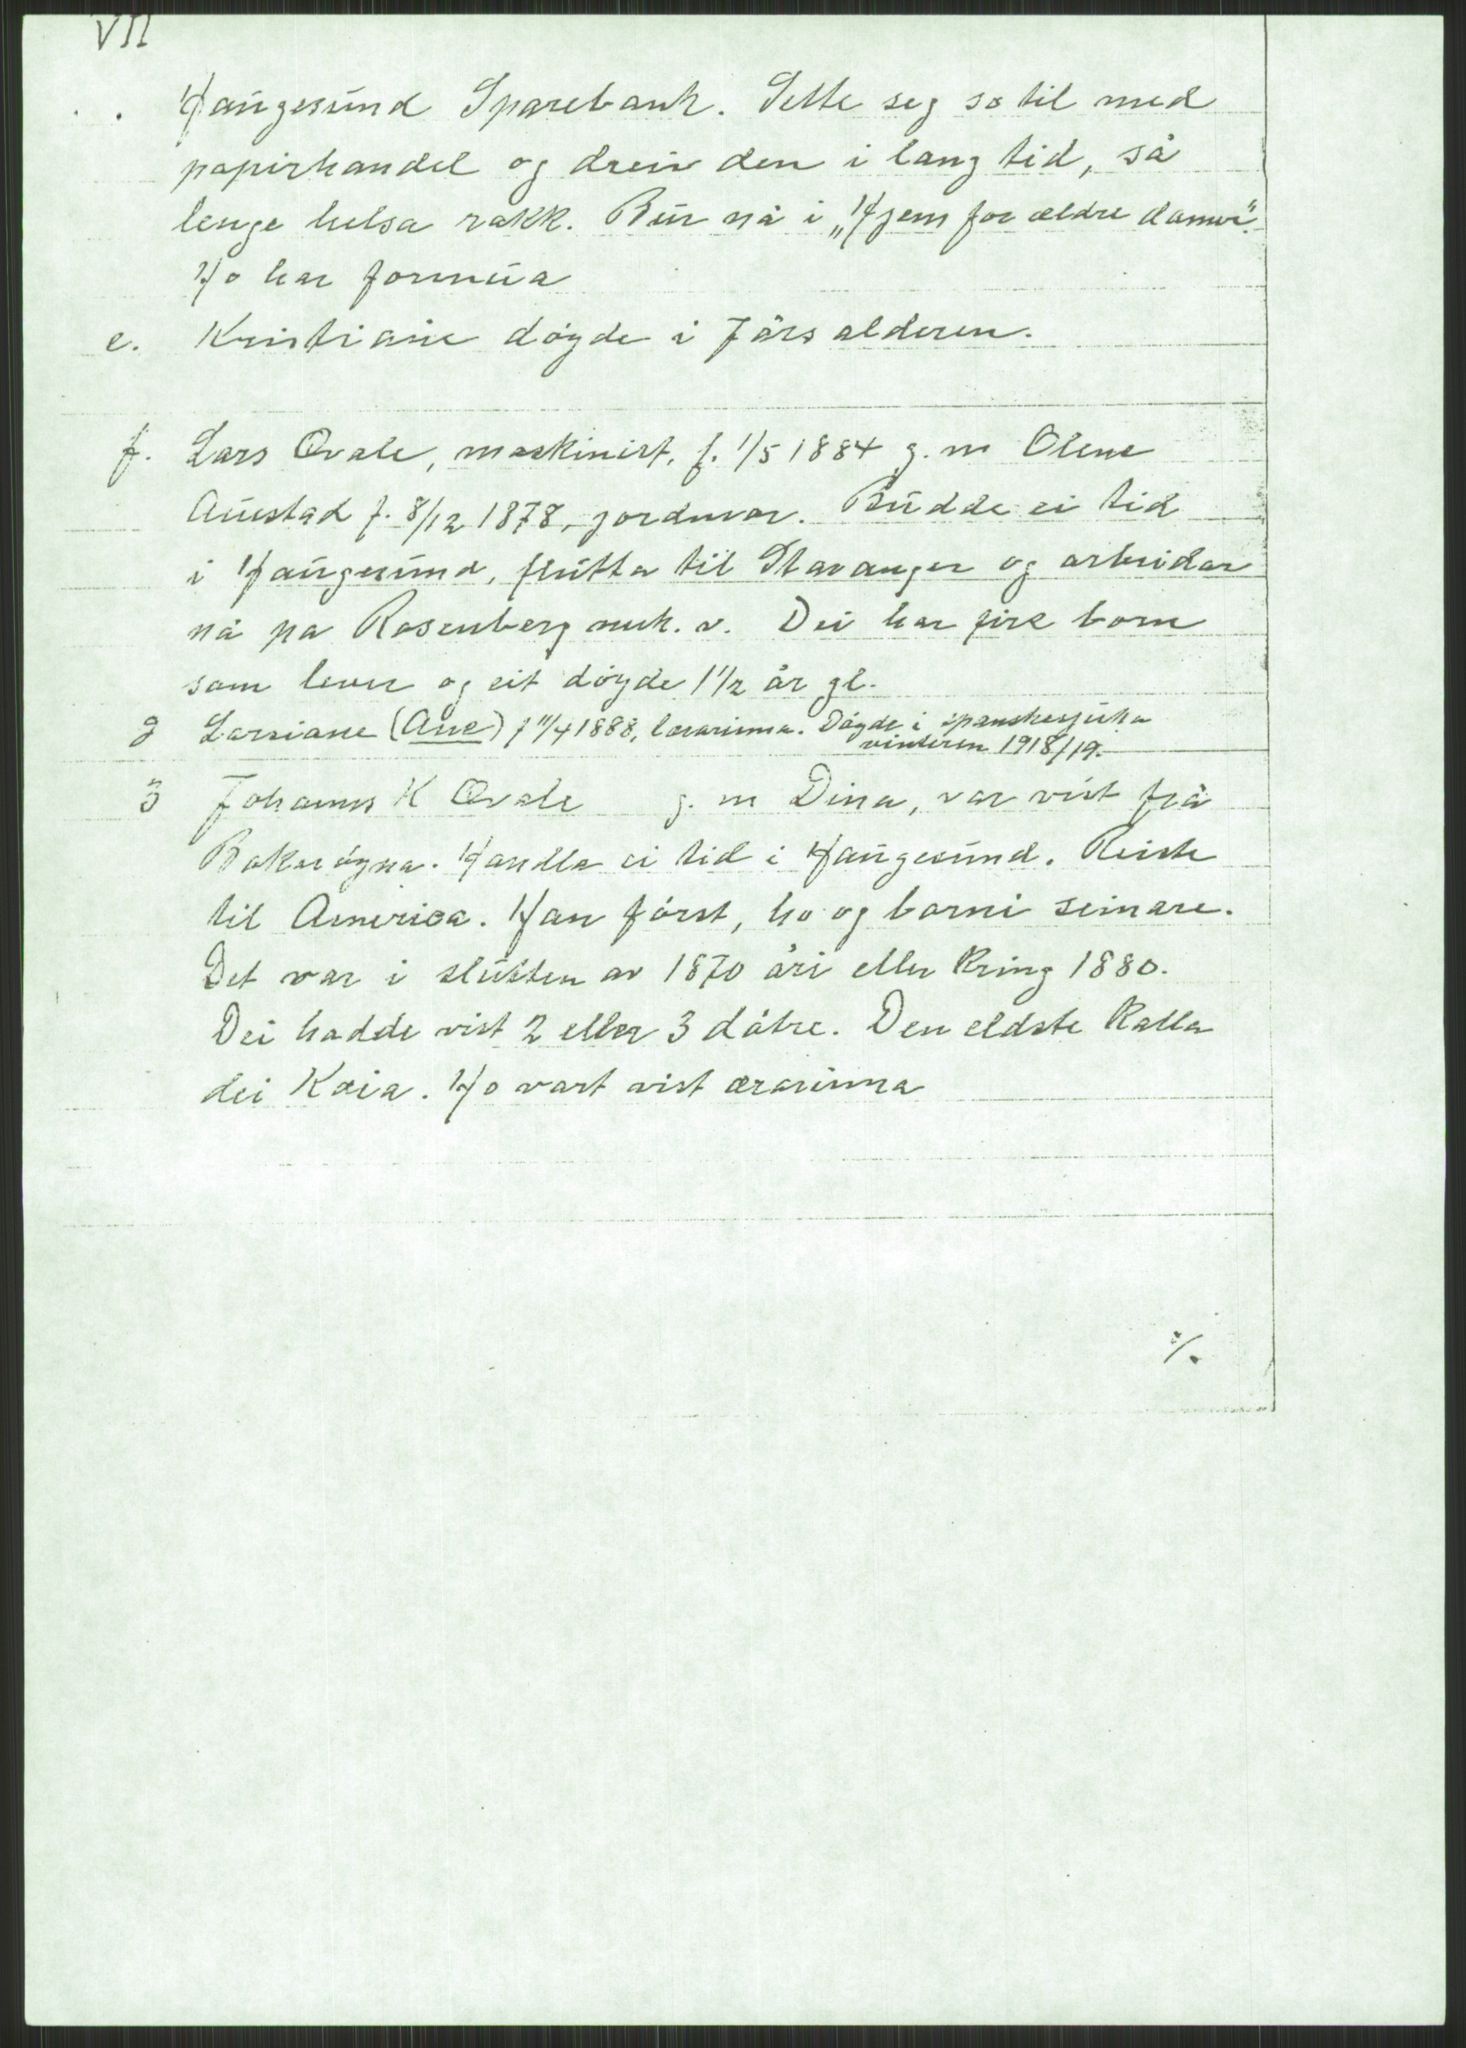 VII
Haugesund Sparebank. Sette seg so til med
papirhandel og dreiv den i lang tid, så
lenge helsa rakk. Bur nå i „Hjem for ældre damer".
Ho har formua
e. Kristiane døyde i 7 års alderen.
f. Lars Qvale, maskinist, f. 1/5 1884 g. m Olene
Austad f. 8/12 1878, jordmor. Budde ei tid
i Haugesund, flutta til Stavanger og arbeidar
nå pa Rosenberg mek. v. Dei har fire born
som lever og eit døyde 1 1/2 år gl.
g Larsiane (Ane) f 11/4 1888, lærarinna. Døyde i spanskesjuka
vinteren 1918/19.
3 Johannes K Qvale g. m Dina, var vist frå
Boknøyna. Handla ei tid i Haugesund. Reiste
til America. Han först, ho og borni seinare.
Det var i slutten av 1870 åri eller kring 1880.
Dei hadde vist 2 eller 3 døtre. Den eldste kalla
dei Kaia. Ho vart vist ærarinna
%.